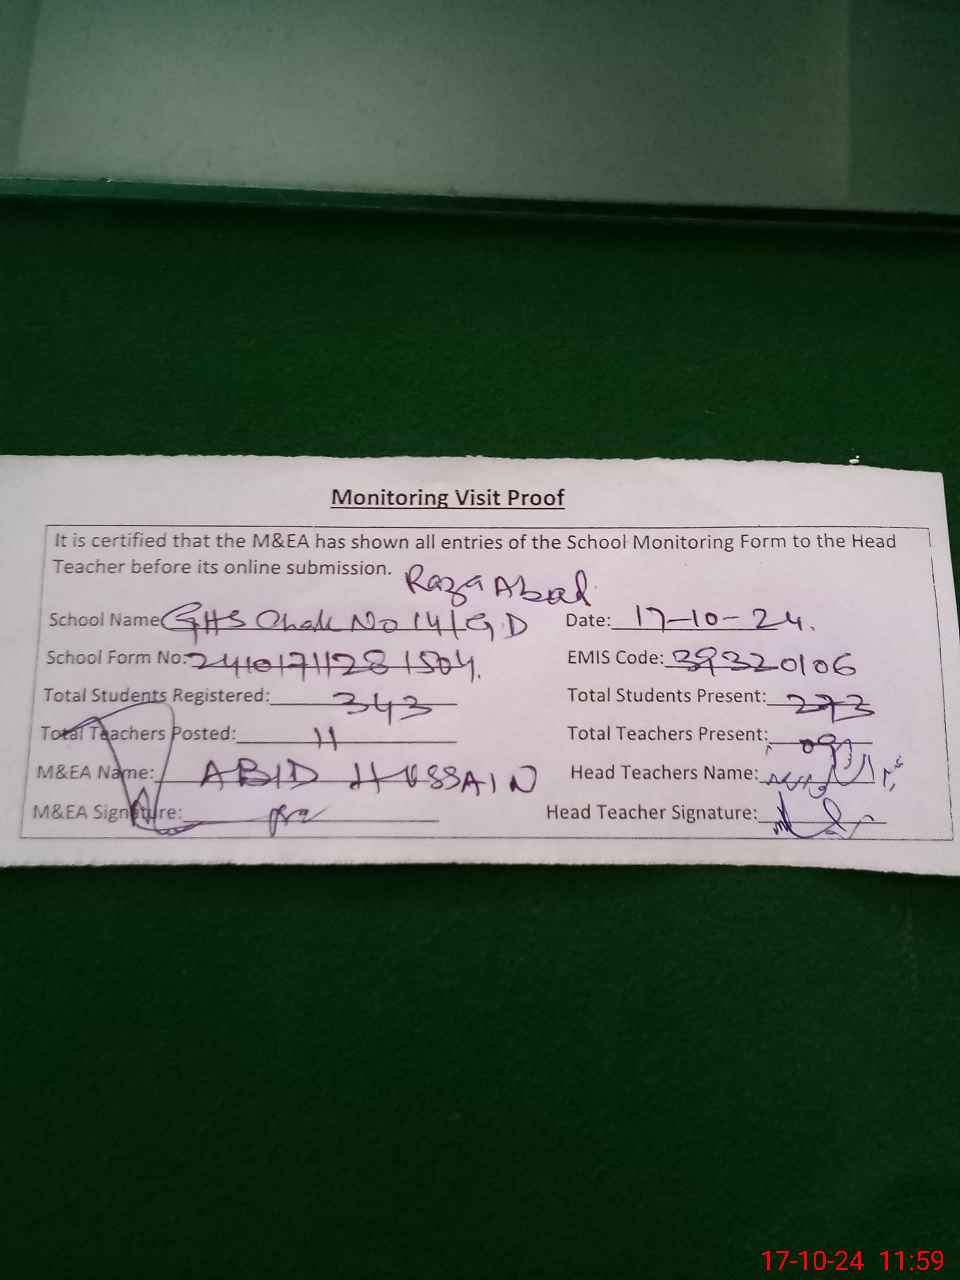 Monitoring Visit Proof
It is certified that the M&EA has shown all entries of the School Monitoring Form to the Head
Teacher before its online submission.
Raza Abad
School Name: GHS Chak No 14/G.D Date: 17-10-24.
School Form No: 2410171128 1504. EMIS Code: 39320106
Total Students Registered: 343 Total Students Present: 273
Total Teachers Posted: 11 Total Teachers Present: 09
M&EA Name: ABID HUSSAIN Head Teachers Name:
M&EA Signature: Head Teacher Signature:
17-10-24 11:59